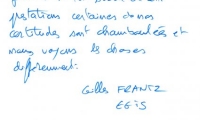 certaines de nos
certitudes sont chamboulées et
nous voyons les choses
différemment.
Gilles FRANTZ
EGIS